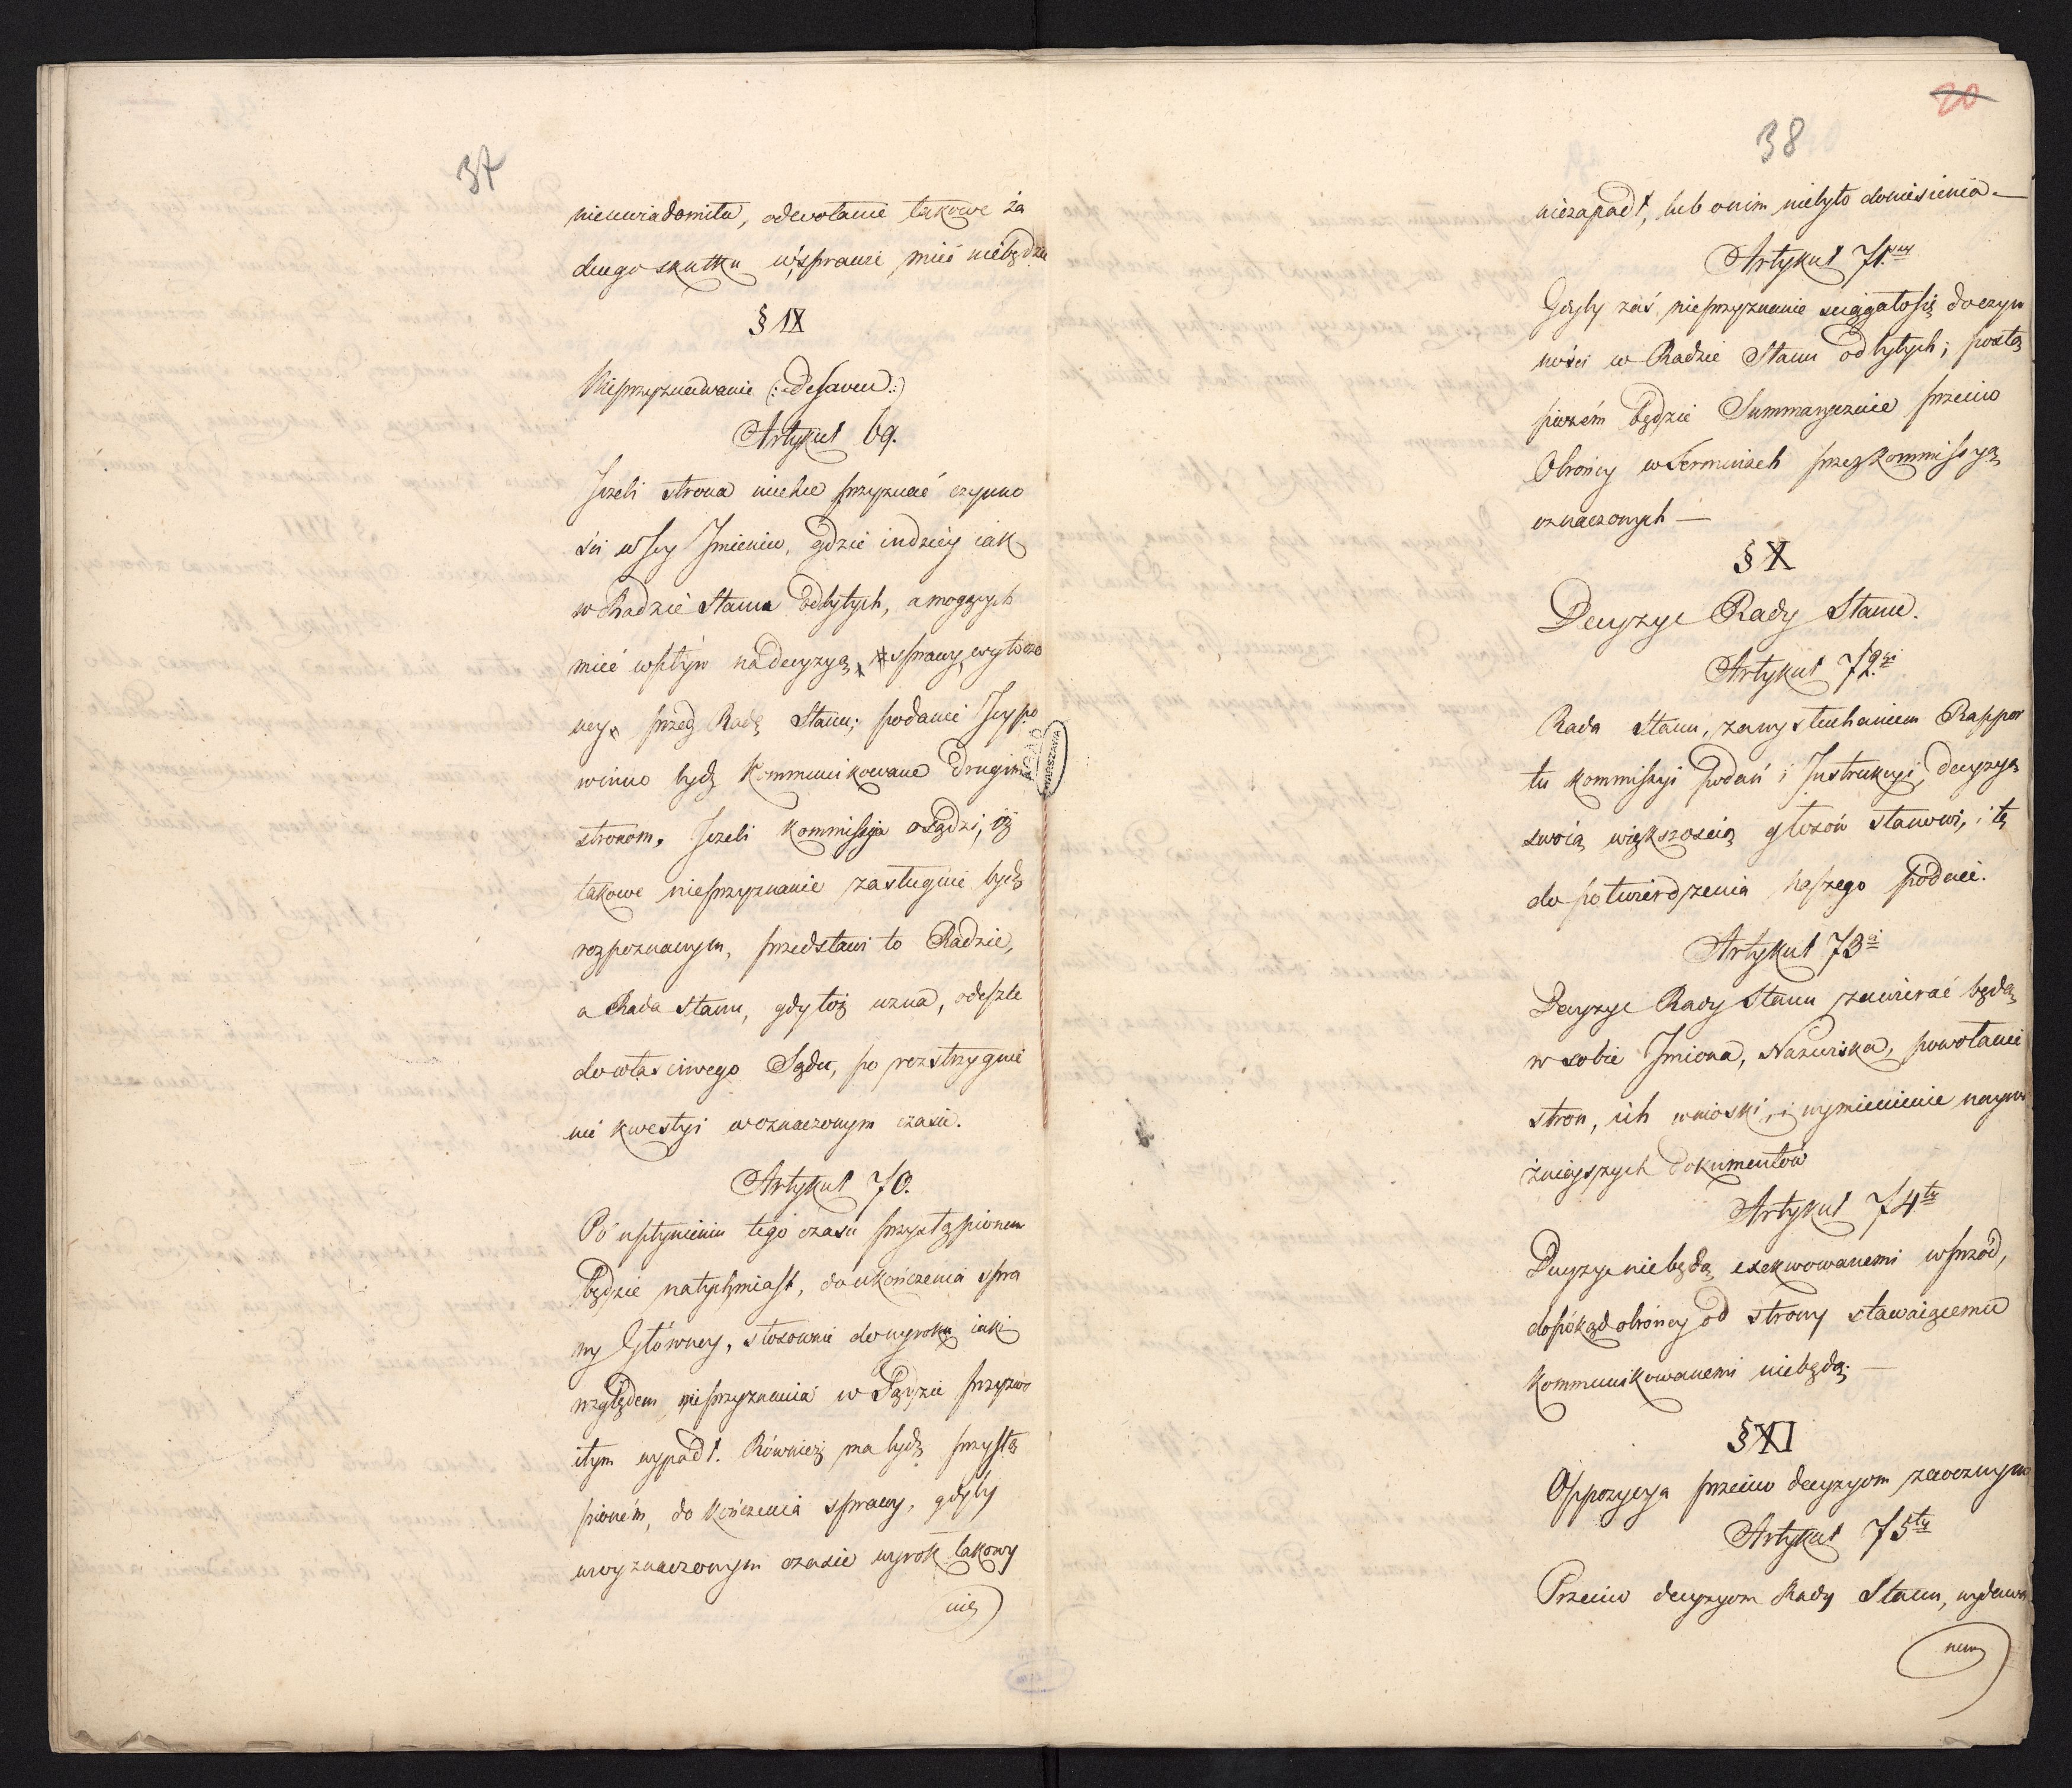 37
nieuwiadomiła, odwołanie takowe ża
dnego skutku w sprawie mieć niebędzie
§ IX
Nieprzyznawanie (:Desaveu:)
Artykuł 69.
Jeżeli strona niechce przyznać czynno
ści w Jey Jmieniu, gdzie indziéy iak
w Radzie Stanu odbytych, a mogących
mieć wpływ na decyzyą sprawy wytoczo
ney przed Radę Stanu; podanie Jey po
winno bydź kommunikowane drugim
stronom. Jeżeli Kommissyia osądzi, iż
takowe nieprzyznanie zasługuie bydź
rozpoznanym, przedstawi to Radzie,
a Rada Stanu, gdy toż uzna, odeszle
do właściwego Sądu, po rozstrzygnie
nie kwestyi w oznaczonym czasie.
Artykuł 70.
Po upłynieniu tego czasu przystąpionem
będzie natychmiast, do ukończenia spra
wy Główney, stosownie do wyroku iaki
względem nieprzyznania w Sądzie przyzwo
itym wypadł. Również ma bydź przystą
pioném, do kończenia sprawy, gdyby
w wyznaczonym czasie wyrok takowy
nie
20
38
niezapadł, lub o nim niebyło doniesienia —
Artykuł 71.wy
Gdyby zaś nieprzyznanie sciągało się do czyn
ności w Radzie Stanu odbytych; postą
pioném będzie Summarycznie przeciw
Obrońcy w Terminach przez Kommissyą
oznaczonych —
§ X
Decyzye Rady Stanu.
Artykuł 72.gi
Rada Stanu, za wysłuchaniem Rappor
tu Kommissyi Podań i Jnstrukcyi, decyzyą
swoią większością głosów stanowi, i tę
do potwierdzenia Naszego podaie.
Artykuł 73i
Decyzye Rady Stanu zawierać będą
w sobie Jmiona, Nazwiska, powołanie
stron, ich wnioski, i wymienienie naywa
żnieyszych dokumentów
Artykuł 74ty
Decyzye niebędą exekwowanemi wprzód,
dopókąd obrońcy od strony stawaiącemu
kommunikowanemi niebędą. —
§ XI
Oppozycya przeciw decyzyom zaocznym
Artykuł 75ty
Przeciw decyzyom Rady Stanu, wydawa
nem
WARSZAWA